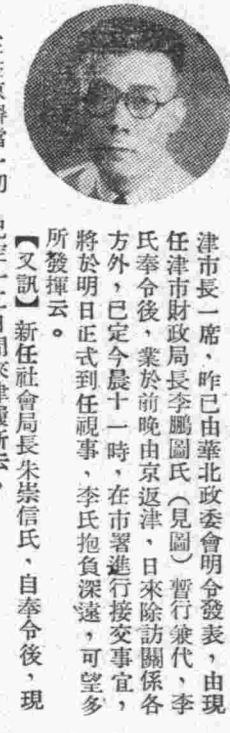 津市長一席、昨已由華北政委會明令發表、由現
任津市財政局長李鵬圖氏（見圖）暫行兼代、李
氏奉令後、業於前晚由京返津、日來除訪關係各
方外、已定今晨十一時、在市署進行接交事宜、
將於明日正式到任視事、李氏抱負深遠、可望多
所發揮云。
【又訊】新任社會局長朱崇信氏、自奉令後、現